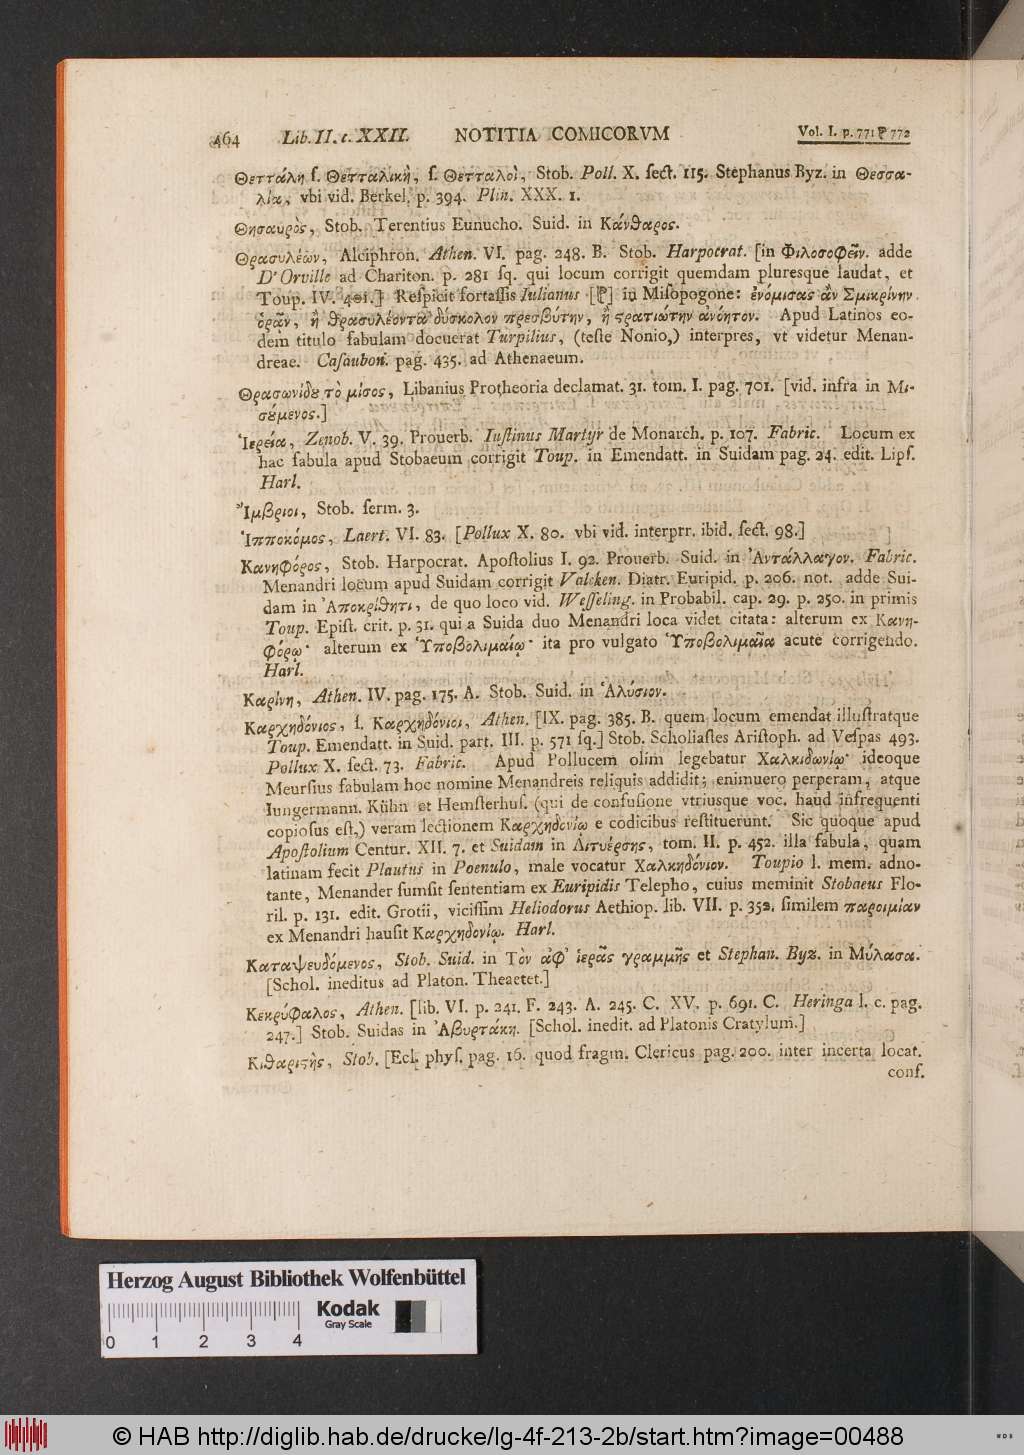 464 Lib. II. c. XXII. NOTITIA COMICORVM Vol. I. p. 771 ⁋ 772
Θετταλὴ ſ. Θετταλικὴ, ſ. Θετταλοὶ, Stob. Poll. X. ſect. 115. Stephanus Byz. in Θεσσα-
λία, vbi vid. Berkel. p. 394. Plin. XXX. 1.
Θησαυρὸς, Stob. Terentius Eunucho. Suid. in Κάνθαρος.
Θρασυλέων, Alciphron. Athen. VI. pag. 248. B. Stob. Harpocrat. [in Φιλοσοφεῖν. adde
D'Orville ad Chariton. p. 281 ſq. qui locum corrigit quemdam pluresque laudat, et
Toup. IV. 401.] Reſpicit fortaſſis Iulianus [⁋] in Miſopogone: ἐνόμισας ἂν Σμικρίνην
ὁρᾶν, ἢ θρασυλέοντα δύσκολον πρεσβύτην, ἢ στρατιώτην ἀνόητον. Apud Latinos eo-
dem titulo fabulam docuerat Turpilius, (teſte Nonio,) interpres, vt videtur Menan-
dreae. Caſaubon. pag. 435. ad Athenaeum.
Θρασωνίδου τὸ μίσος, Libanius Protheoria declamat. 31. tom. I. pag. 701. [vid. infra in Μι-
σούμενος.]
Ἱερεία, Zenob. V. 39. Prouerb. Iuſtinus Martyr de Monarch. p. 107. Fabric. Locum ex
hac fabula apud Stobaeum corrigit Toup. in Emendatt. in Suidam pag. 24. edit. Lipſ.
Harl.
Ἴμβριοι, Stob. ſerm. 3.
Ἱπποκόμος, Laert. VI. 83. [Pollux X. 80. vbi vid. interprr. ibid. ſect. 98.]
Κανηφόρος, Stob. Harpocrat. Apoſtolius I. 92. Prouerb. Suid. in Ἀντάλλαγον. Fabric.
Menandri locum apud Suidam corrigit Valcken. Diatr. Euripid. p. 206. not. adde Sui-
dam in Ἀποκρίθητι, de quo loco vid. Weſſeling. in Probabil. cap. 29. p. 250. in primis
Toup. Epiſt. crit. p. 31. qui a Suida duo Menandri loca videt citata: alterum ex Κανη-
φόρῳ· alterum ex Ὑποβολιμαίῳ· ita pro vulgato Ὑποβολιμαῖα acute corrigendo.
Harl.
Καρίνη, Athen. IV. pag. 175. A. Stob. Suid. in Ἀλύσιον.
Καρχηδόνιος, ſ. Καρχηδόνιοι, Athen. [IX. pag. 385. B. quem locum emendat illuſtratque
Toup. Emendatt. in Suid. part. III. p. 571 ſq.] Stob. Scholiaſtes Ariſtoph. ad Veſpas 493.
Pollux X. ſect. 73. Fabric. Apud Pollucem olim legebatur Χαλκιδωνίῳ· ideoque
Meurſius fabulam hoc nomine Menandreis reliquis addidit; enimuero perperam, atque
Iungermann. Kühn et Hemſterhuſ. (qui de confuſione vtriusque voc. haud infrequenti
copioſus eſt,) veram lectionem Καρχηδονίῳ e codicibus reſtituerunt. Sic quoque apud
Apoſtolium Centur. XII. 7. et Suidam in Λιτυέρσης, tom. II. p. 452. illa fabula, quam
latinam fecit Plautus in Poenulo, male vocatur Χαλκηδόνιον. Toupio l. mem. adno-
tante, Menander ſumſit ſententiam ex Euripidis Telepho, cuius meminit Stobaeus Flo-
ril. p. 131. edit. Grotii, viciſſim Heliodorus Aethiop. lib. VII. p. 352. ſimilem παροιμίαν
ex Menandri hauſit Καρχηδονίῳ. Harl.
Καταψευδόμενος, Stob. Suid. in Τὸν ἀφ' ἱερᾶς γραμμῆς et Stephan. Byz. in Μύλασα.
[Schol. ineditus ad Platon. Theaetet.]
Κεκρύφαλος, Athen. [lib. VI. p. 241. F. 243. A. 245. C. XV. p. 691. C. Heringa l. c. pag.
247.] Stob. Suidas in Ἀβυρτάκη. [Schol. inedit. ad Platonis Cratylum.]
Κιθαριστὴς, Stob. [Ecl. phyſ. pag. 16. quod fragm. Clericus pag. 200. inter incerta locat.
conf.
Herzog August Bibliothek Wolfenbüttel
Kodak
Gray Scale
0 1 2 3 4
© HAB http://diglib.hab.de/drucke/lg-4f-213-2b/start.htm?image=00488